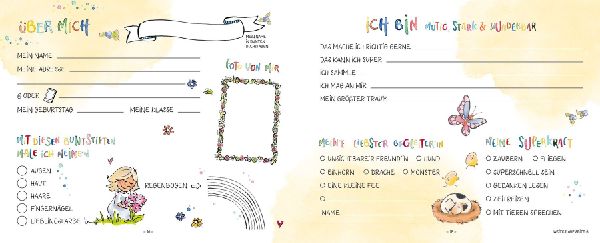 ÜBER MICH
MEIN NAME
MEINE ADRESSE
& ODER
MEIN GEBURTSTAG
MEINE KLASSE
FOTO VON MIR
MIT DIESEN BUNTSTIFTEN
MALE ICH MEINE(N)
AUGEN
HAUT
HAARE
FINGERNÄGEL
LIEBLINGSFARBE
REGENBOGEN
ICH BIN MUTIG, STARK & WUNDERBAR
DAS MACHE ICH RICHTIG GERNE
DAS KANN ICH SUPER
ICH SAMMLE
ICH MAG AN MIR
MEIN GRÖßTER TRAUM
MEINE LIEBSTER BEGLEITER:IN
UNSICHTBARE:R FREUND:IN
HUND
EINHORN
DRACHE
MONSTER
EINE KLEINE FEE
NAME
MEINE SUPERKRAFT
ZAUBERN
FLIEGEN
SUPERSCHNELL SEIN
GEDANKEN LESEN
ZEITREISEN
MIT TIEREN SPRECHEN